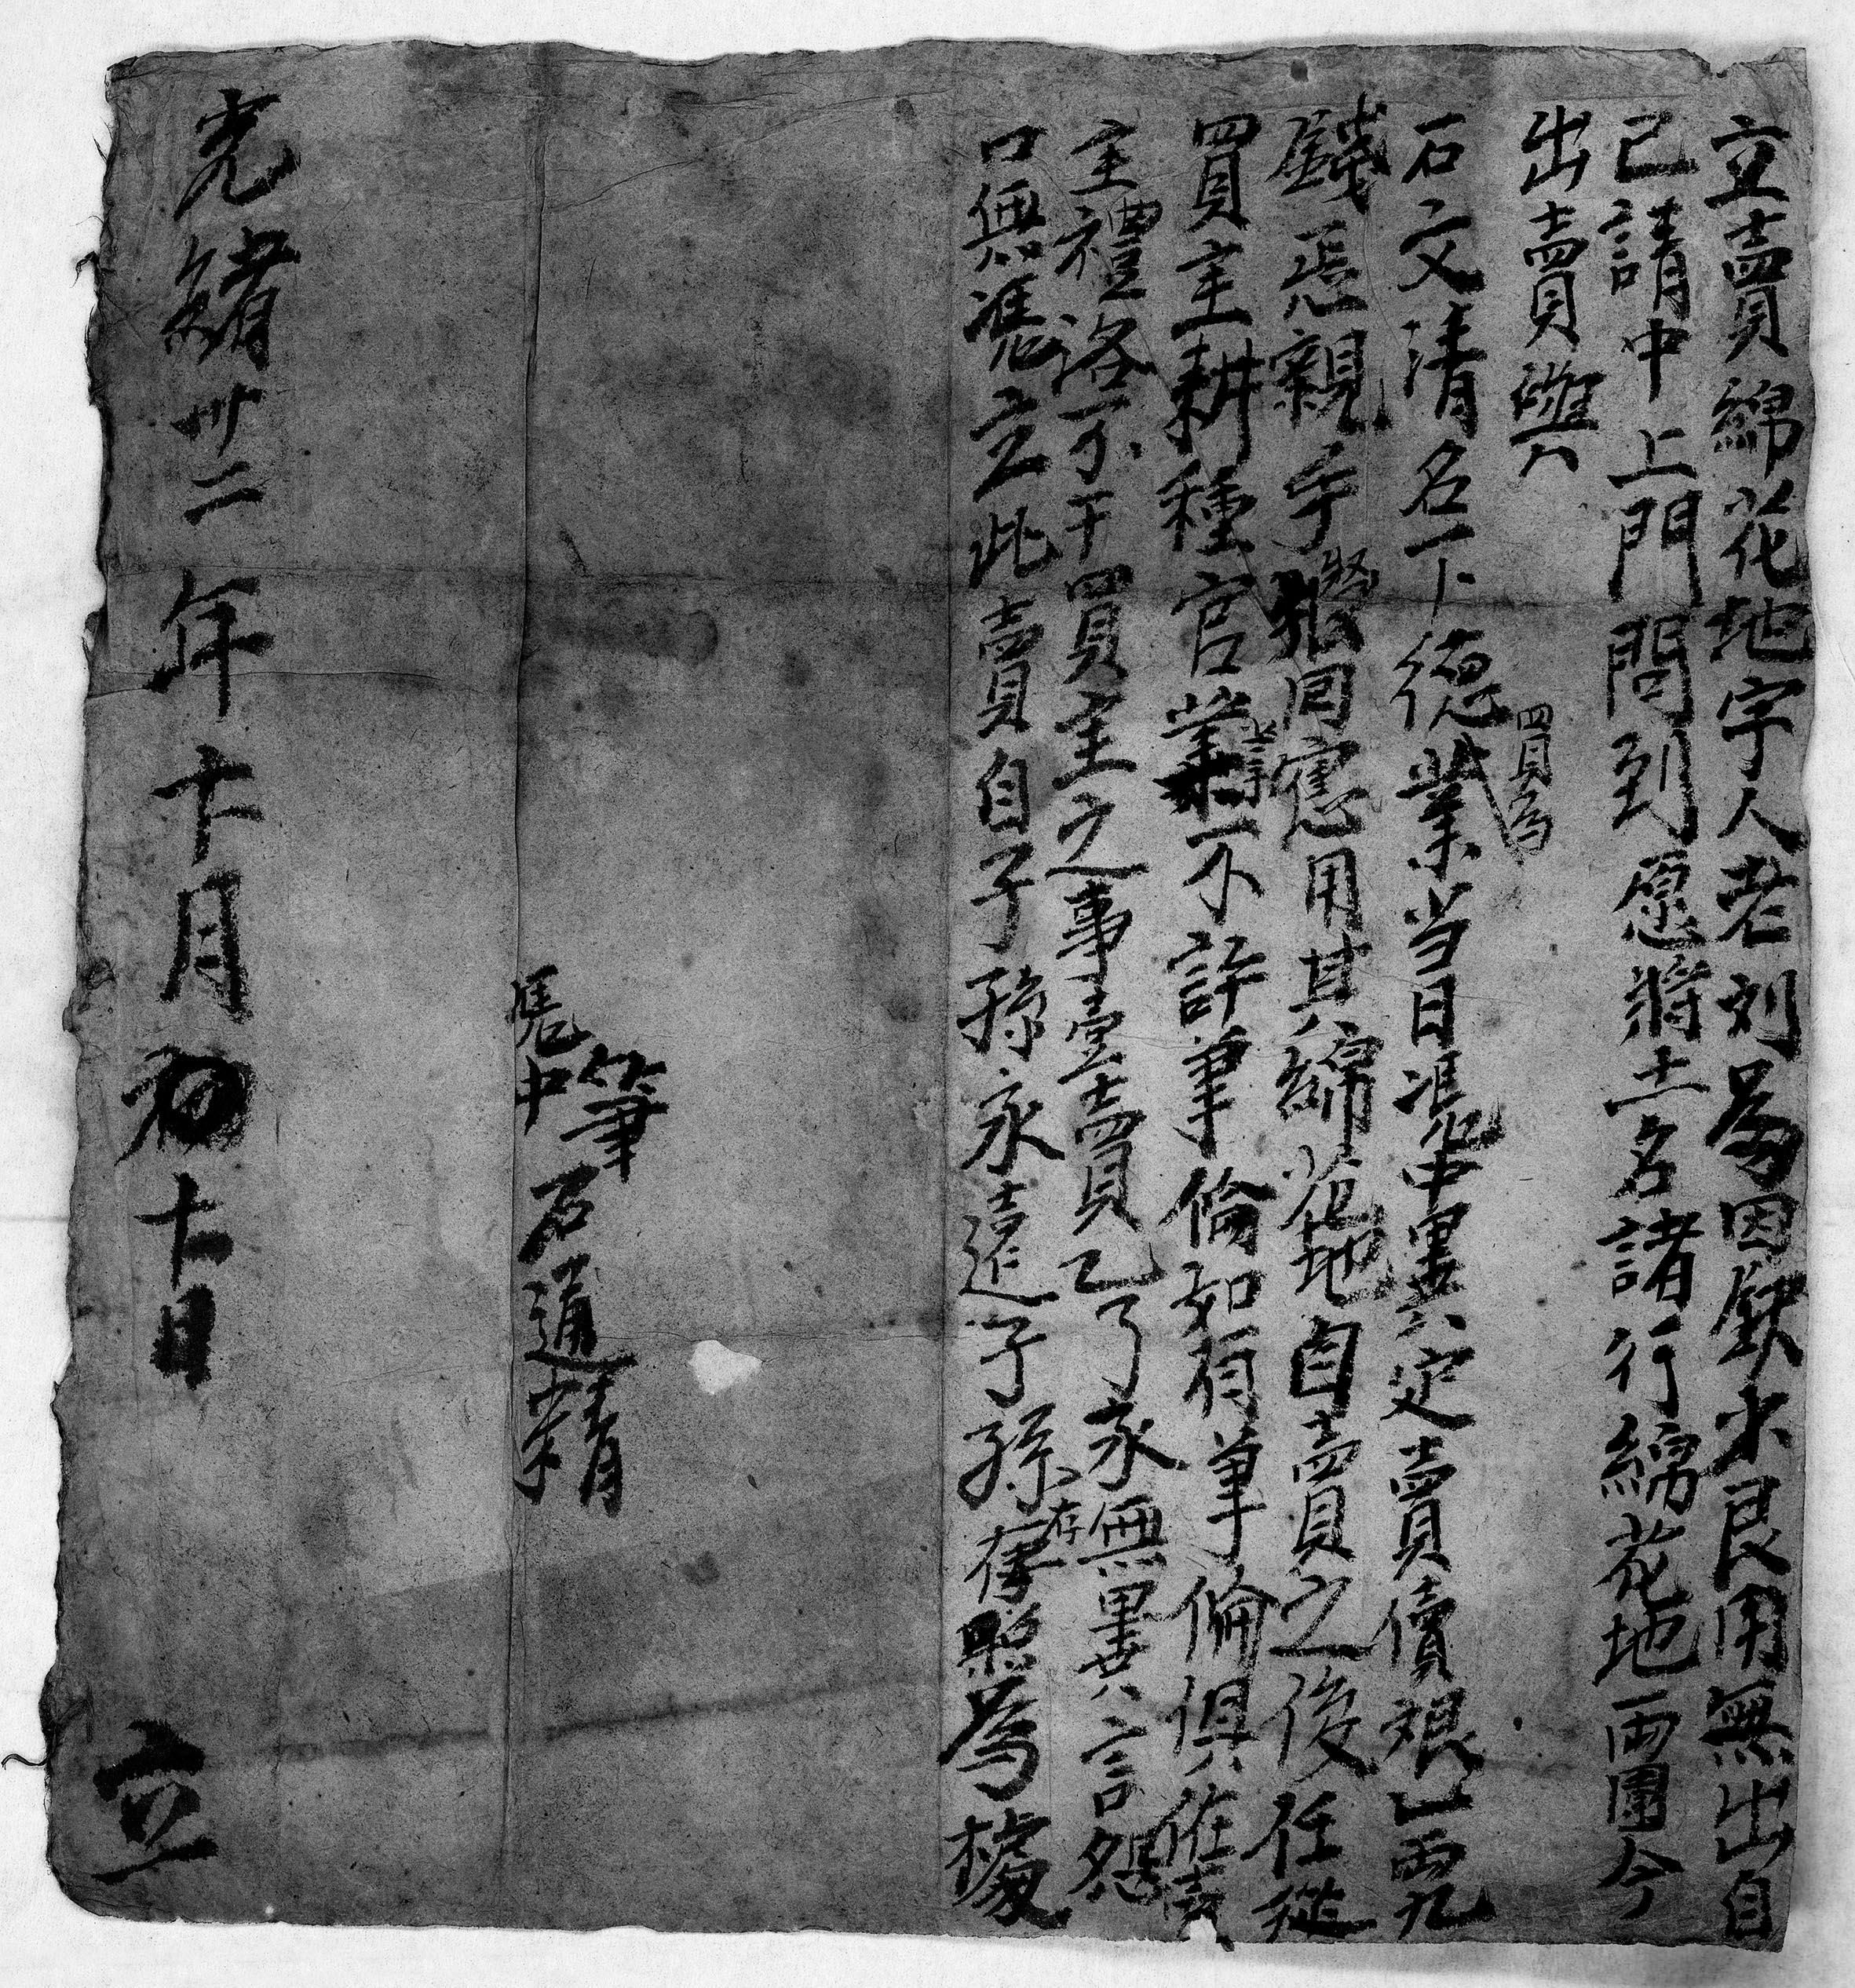 立賣綿花地字人老列爲因缺少艮用無出自
己請中上門問到愿將土名諸行綿花地兩團今
出賣與
石文清名下德買爲業当日憑中異定賣價艰乚兩九
錢恁親手領回應用其綿花地自賣之後任從
買主耕種官業賣主不許争倫如有争倫俱在賣
主禮洛不干買主之事壹賣乙了永無異言恐
口無憑立此賣自子孫永遠子孫存照爲據
筆
憑中 石通精
光緒卅二年十月初十日 立